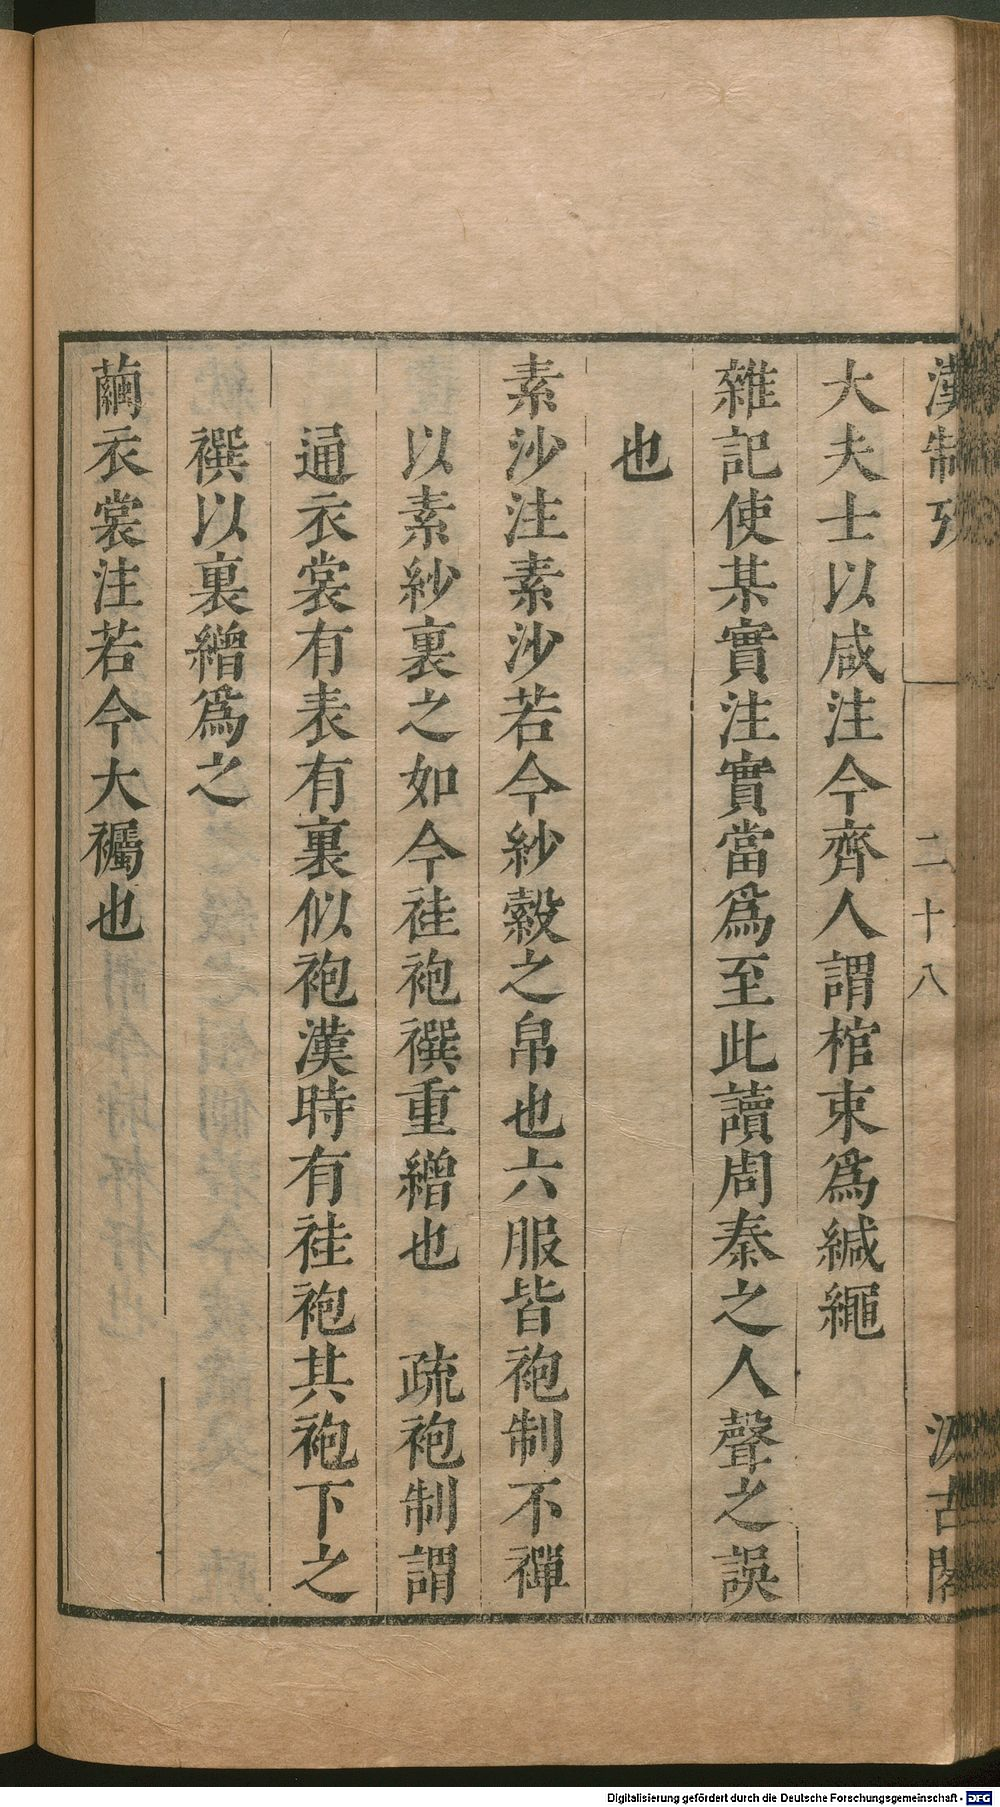 漢制攷
二十八
汲古閣
大夫士以咸注今齊人謂棺束爲緘繩
雜記使某實注實當爲至此讀周秦之人聲之誤
也
素沙注素沙若今紗縠之帛也六服皆袍制不襌
以素紗裏之如今袿袍襈重繒也　疏袍制謂
通衣裳有表有裏似袍漢時有袿袍其袍下之
襈以裏繒爲之
繭衣裳注若今大襡也
Digitalisierung gefördert durch die Deutsche Forschungsgemeinschaft - DFG